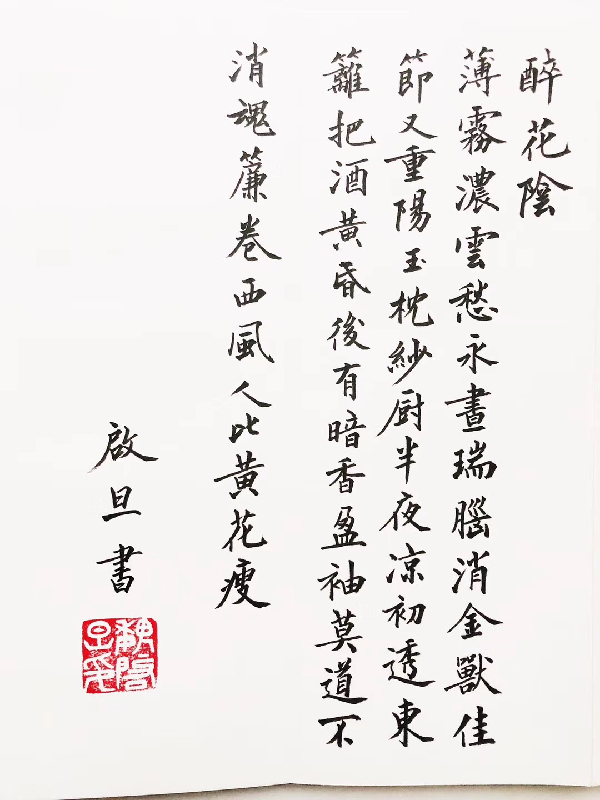 醉花陰
薄霧濃雲愁永晝瑞腦消金獸佳
節又重陽玉枕紗厨半夜凉初透東
籬把酒黃昏後有暗香盈袖莫道不
消魂簾卷西風人比黃花瘦
啟旦書